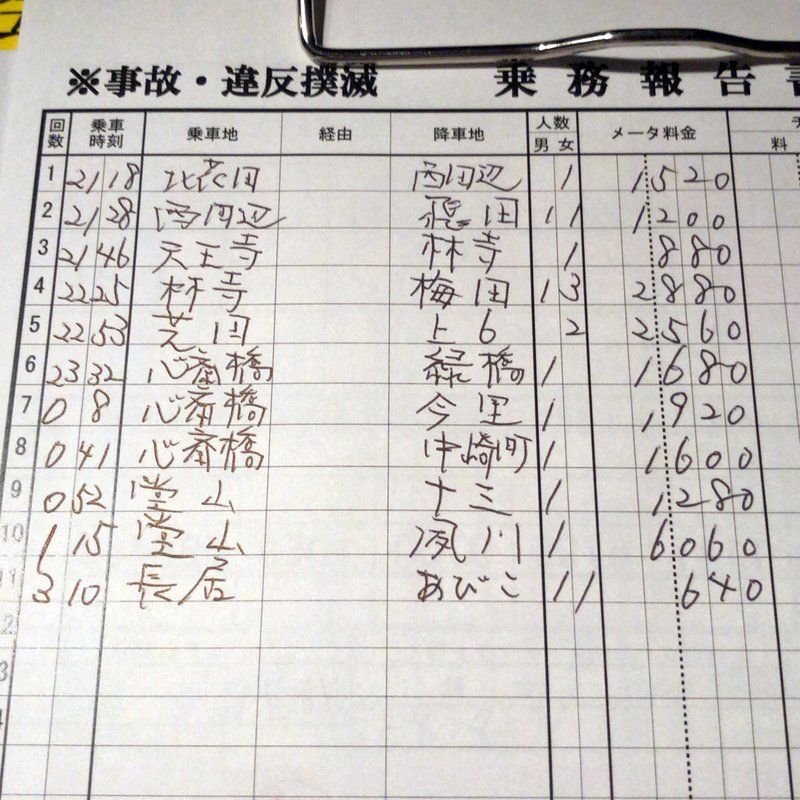 ※事故・違反撲滅 乗務報告書
回数 乗車時刻 乗車地 経由 降車地 人数 男 女 メータ料金 料
1 21 18 北花田 西田辺 1 1520
2 21 28 西田辺 飛田 1 1 1200
3 21 46 天王寺 林寺 1 880
4 22 25 林寺 梅田 1 3 2880
5 22 53 芝田 上6 2 2560
6 23 32 心斎橋 緑橋 1 1680
7 0 8 心斎橋 今里 1 1920
8 0 41 心斎橋 中崎町 1 1600
9 0 52 堂山 十三 1 1280
10 1 15 堂山 夙川 1 6060
11 3 10 長居 あびこ 1 1 640
2
3
4